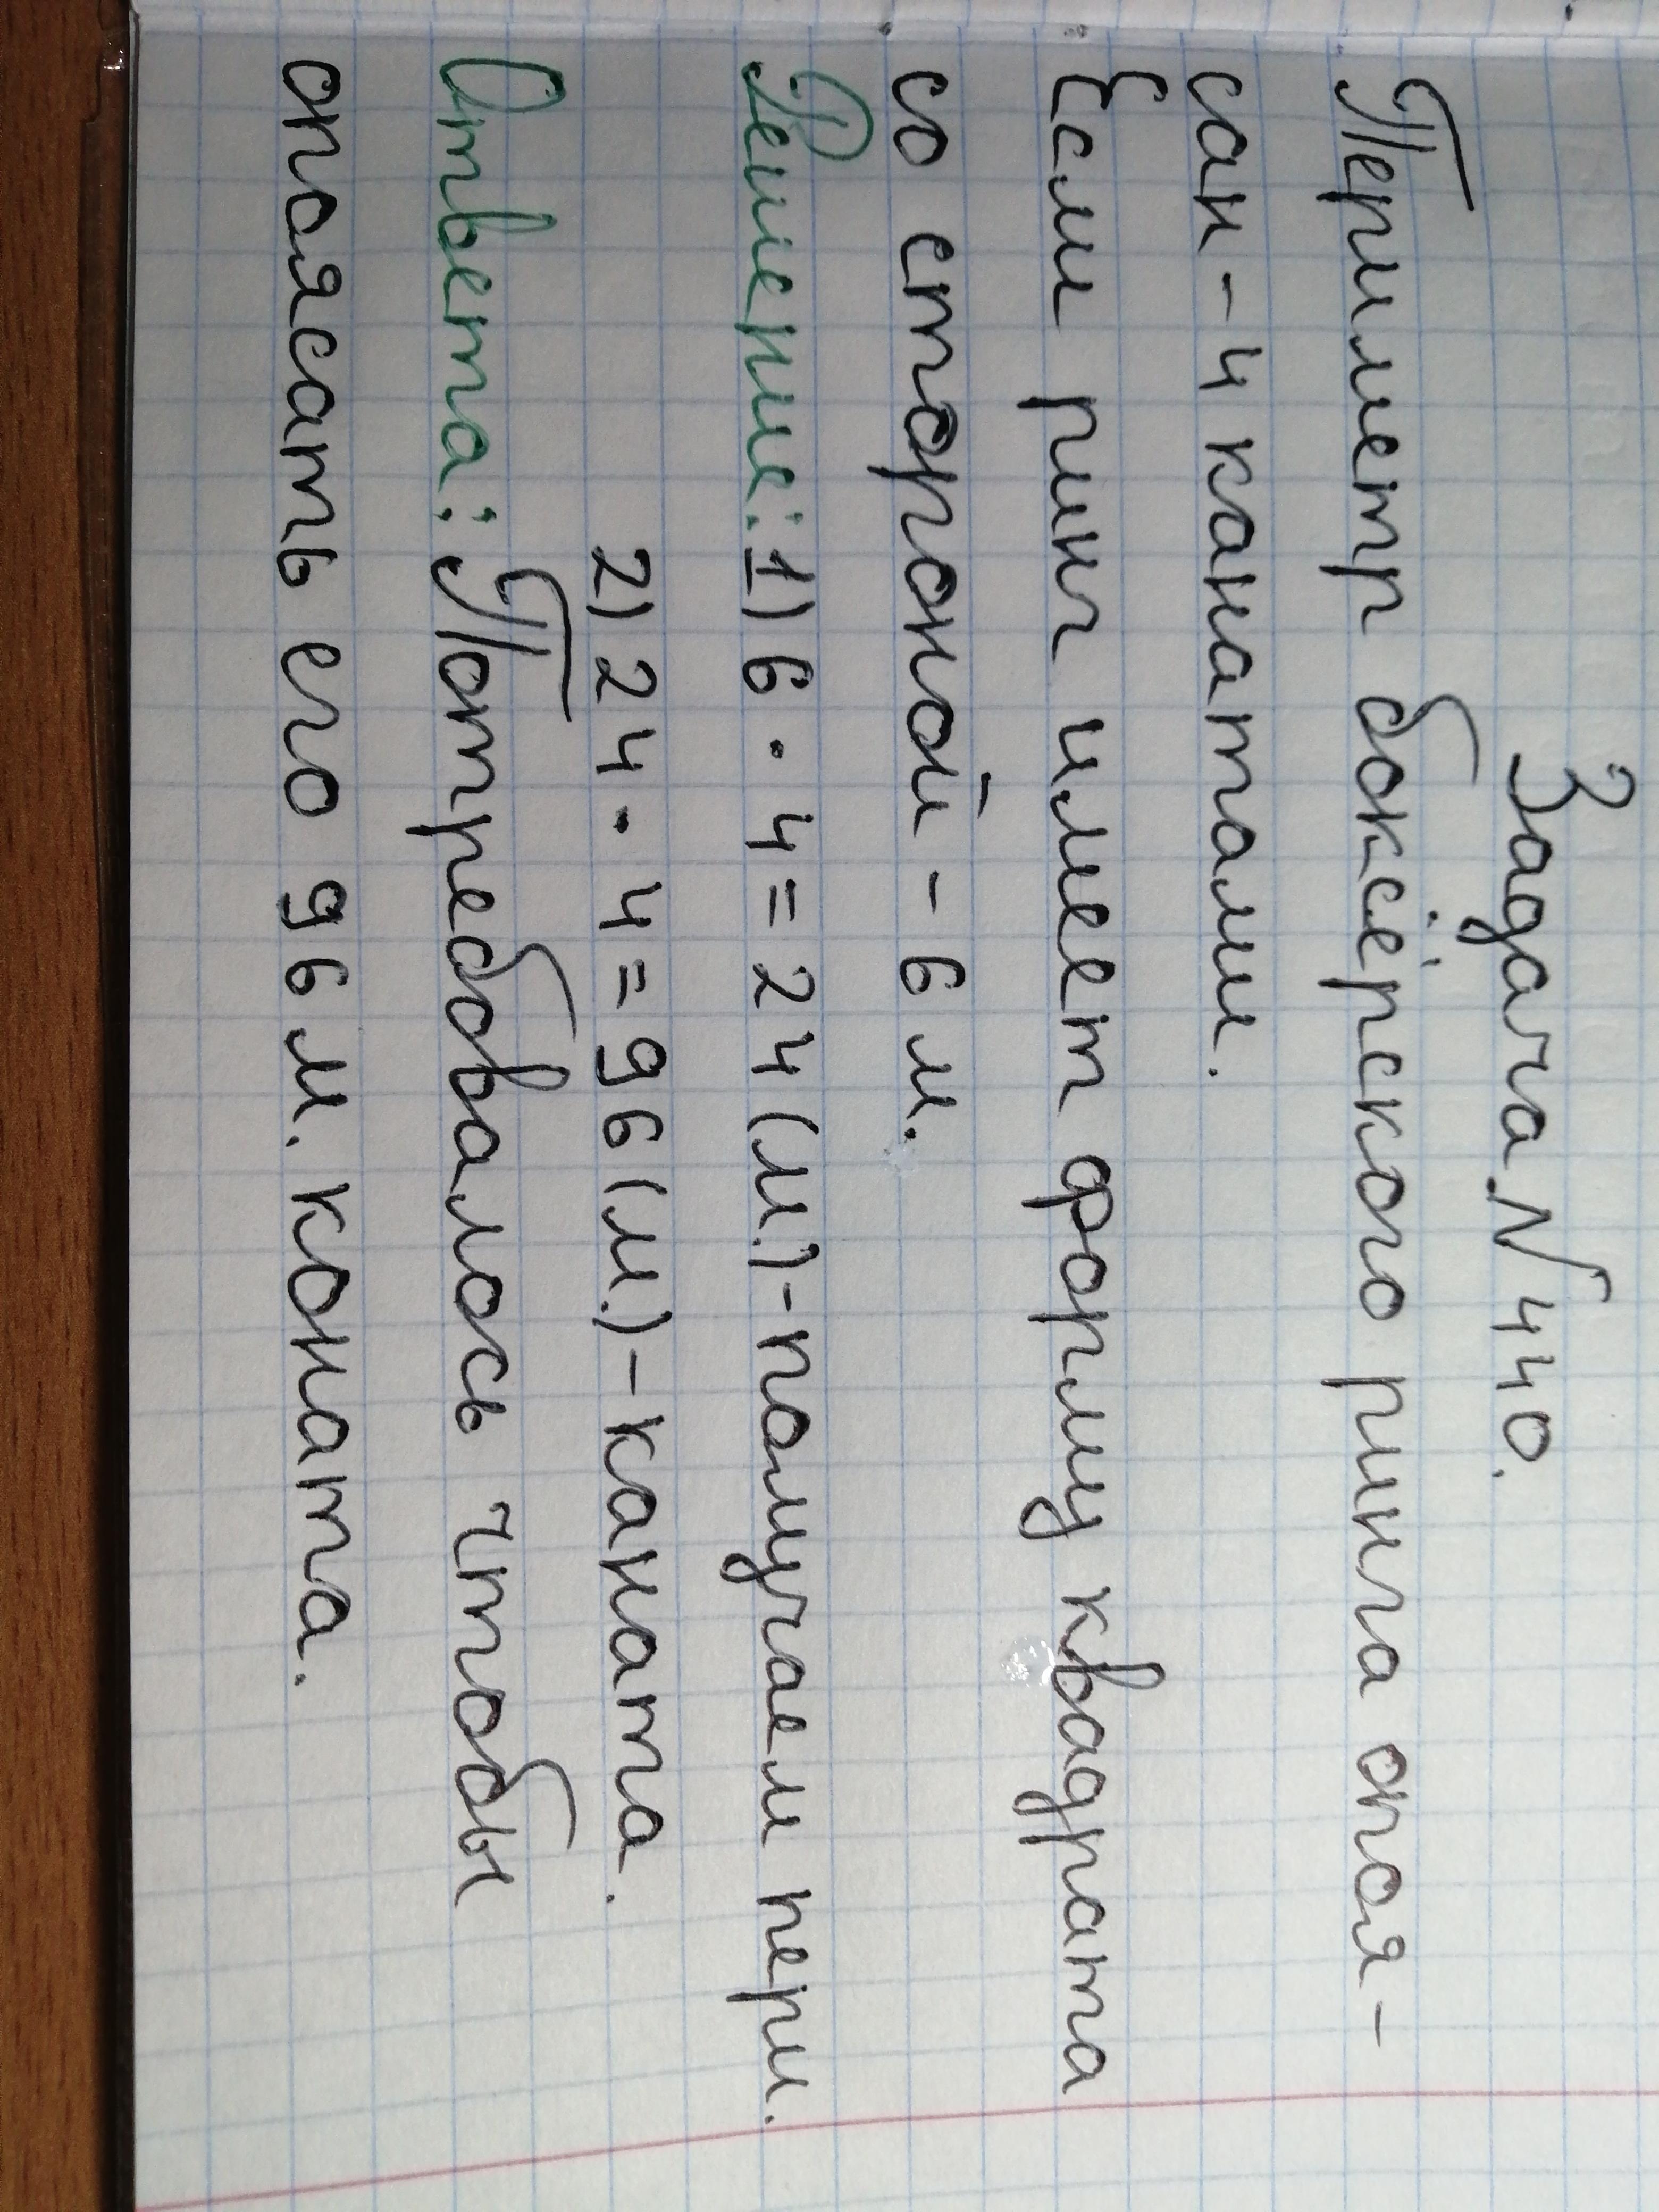 Задача №440.
Периметр боксёрского ринга опоя-
сан - 4 канатами.
Если ринг имеет форму квадрата
со стороной - 6 м.
Решение: 1) 6 · 4 = 24 (м.) - получаем пери.
2) 24 · 4 = 96 (м.) - каната.
Ответа: Потребовалось чтобы
опоясать его 96 м. коната.